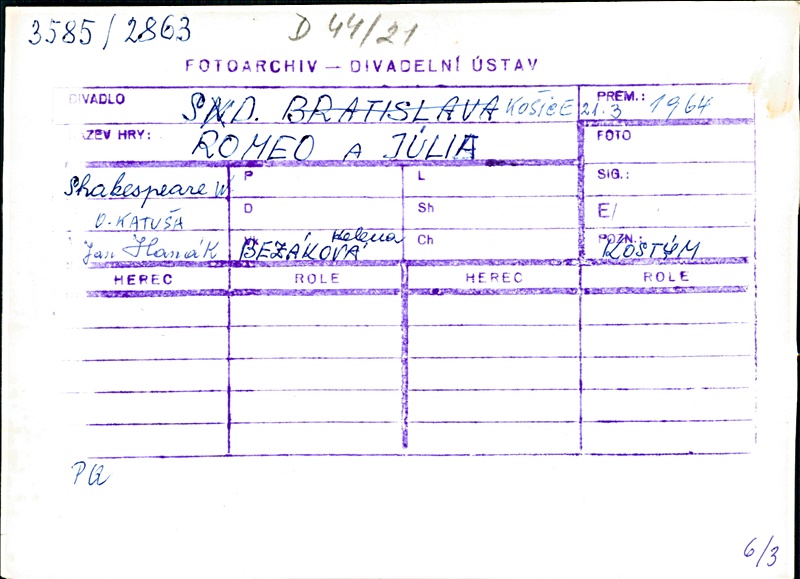 3585/2863
D 44/21
FOTOARCHIV — DIVADELNÍ ÚSTAV
DIVADLO SND. BRATISLAVA KOŠICE 21.3 PREM.: 1964
ZEV HRY: ROMEO A JÚLIA FOTO
Shakespeare W P L SIG.:
O. KATUŠA D Sh E/
Jan Hanák BEZÁKOVÁ Helena Ch POZN.: KOSTÝM
HEREC ROLE HEREC ROLE
PQ
6/3